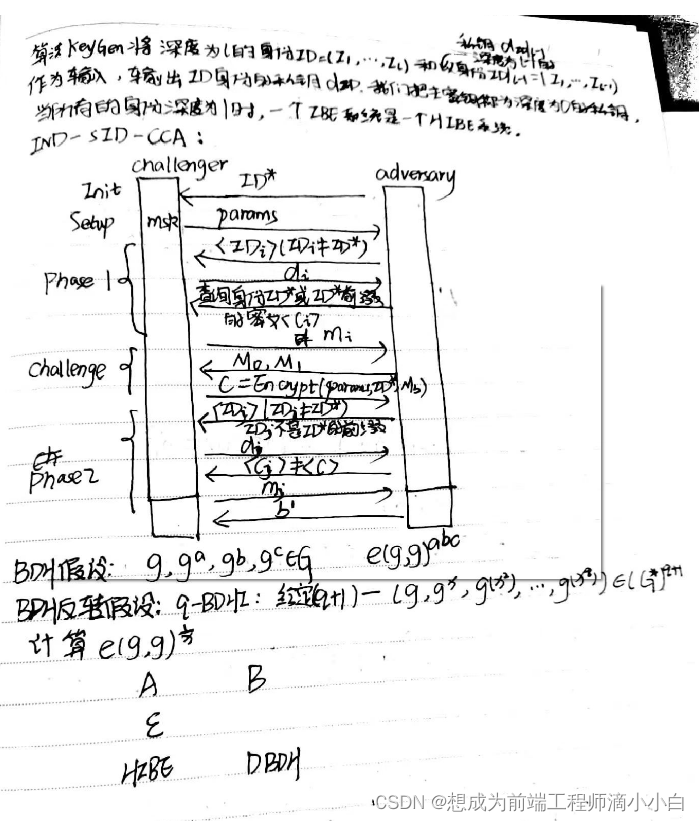 私钥 d_ID|l-1
算法 KeyGen 将 深度为 l 的身份 ID=(I₁,…,I_l) 和 深度为 l-1 的 父身份 ID|l-1=(I₁,…,I_l-1)
作为输入，输出 ID 身份的私钥 d_ID. 我们把主密钥称为深度为 0 的私钥,
当所有的身份深度为 1 时，一个 IBE 系统是一个 HIBE 系统.
IND-sID-CCA:
challenger adversary
Init ID*
Setup msk params
Phase 1 <IDi> (IDi≠ID*)
di
查询身份 ID* 或 ID* 前缀
的密文<Ci>
mi
challenge M₀, M₁
C=Encrypt(params,ID*,Mb)
<IDi> IDi≠ID*
IDi 不是 ID* 的前缀
di
Phase2 <Cj>≠<C>
mi
b'
BDH假设: g, gᵃ, gᵇ, gᶜ∈G e(g,g)ᵃᵇᶜ
BDH反转假设: q-BDHI: 给定(q+1)- (g, gˣ, g^(x²), …, g^(x^q))∈(G*)^q+1
计算 e(g,g)^1/x
A B
ε
HIBE DBDH
CSDN @想成为前端工程师滴小小白